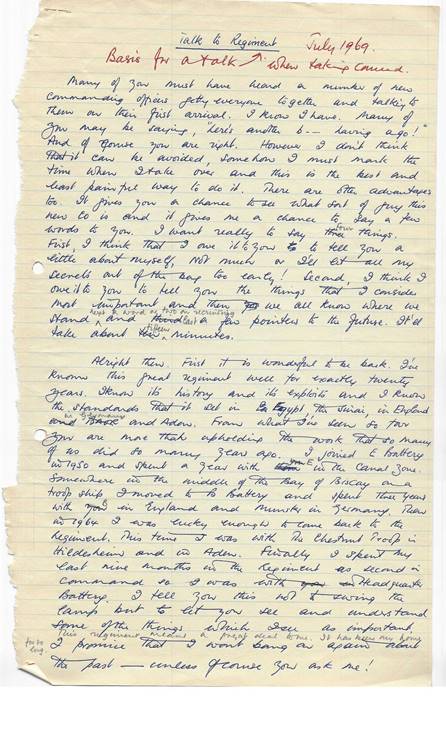 Talk to Regiment July 1969.
Basis for a talk when taking command.
Many of you must have heard a number of new
commanding officers getting everyone together and talking to
them on their first arrival. I know I have. Many of
you may be saying, here's another b-- having a go!
And of course you are right. However I don't think
that it can be avoided, somehow I must mark the
time when I take over and this is the best and
least painful way to do it. There are other advantages
too. It gives you a chance to see what sort of guy this
new CO is and it gives me a chance to say a few
words to you. I want really to say four things.
First, I think that I owe it to you to tell you a
little about myself, Not much or I'd let all my
secrets out of the bag too early! Second, I think I
owe it to you to tell you the things that I consider
most important and then we all know where we
stand, next a word or two on recruiting and last a few pointers to the future. It'll
take about fifteen minutes.
Alright then. First it is wonderful to be back. I've
known this great regiment well for exactly twenty
years. I know its history and its exploits and I know
the standards that it set in Egypt, the Sinai, in England
in Germany and Aden. From what I've seen so far
you are more than upholding the work that so many
of us did so many years ago. I joined E Battery
in 1950 and spent a year with in the Canal Zone.
Somewhere in the middle of the Bay of Biscay on a
troop ship I moved to B Battery and spent three years
with you in England and Munster in Germany. Then
in 1964 I was lucky enough to come back to the
Regiment. This time I was with The Chestnut Troop in
Hildesheim and in Aden. Finally I spent my
last nine months in the Regiment as second in
command so I was with Headquarter
Battery. I tell you this not to swing the
lamp but to let you see and understand
some of the things which I see as important.
This regiment means a great deal to me. It has been my home
for so long
I promise that I won't bang on again about
the past — unless of course you ask me!